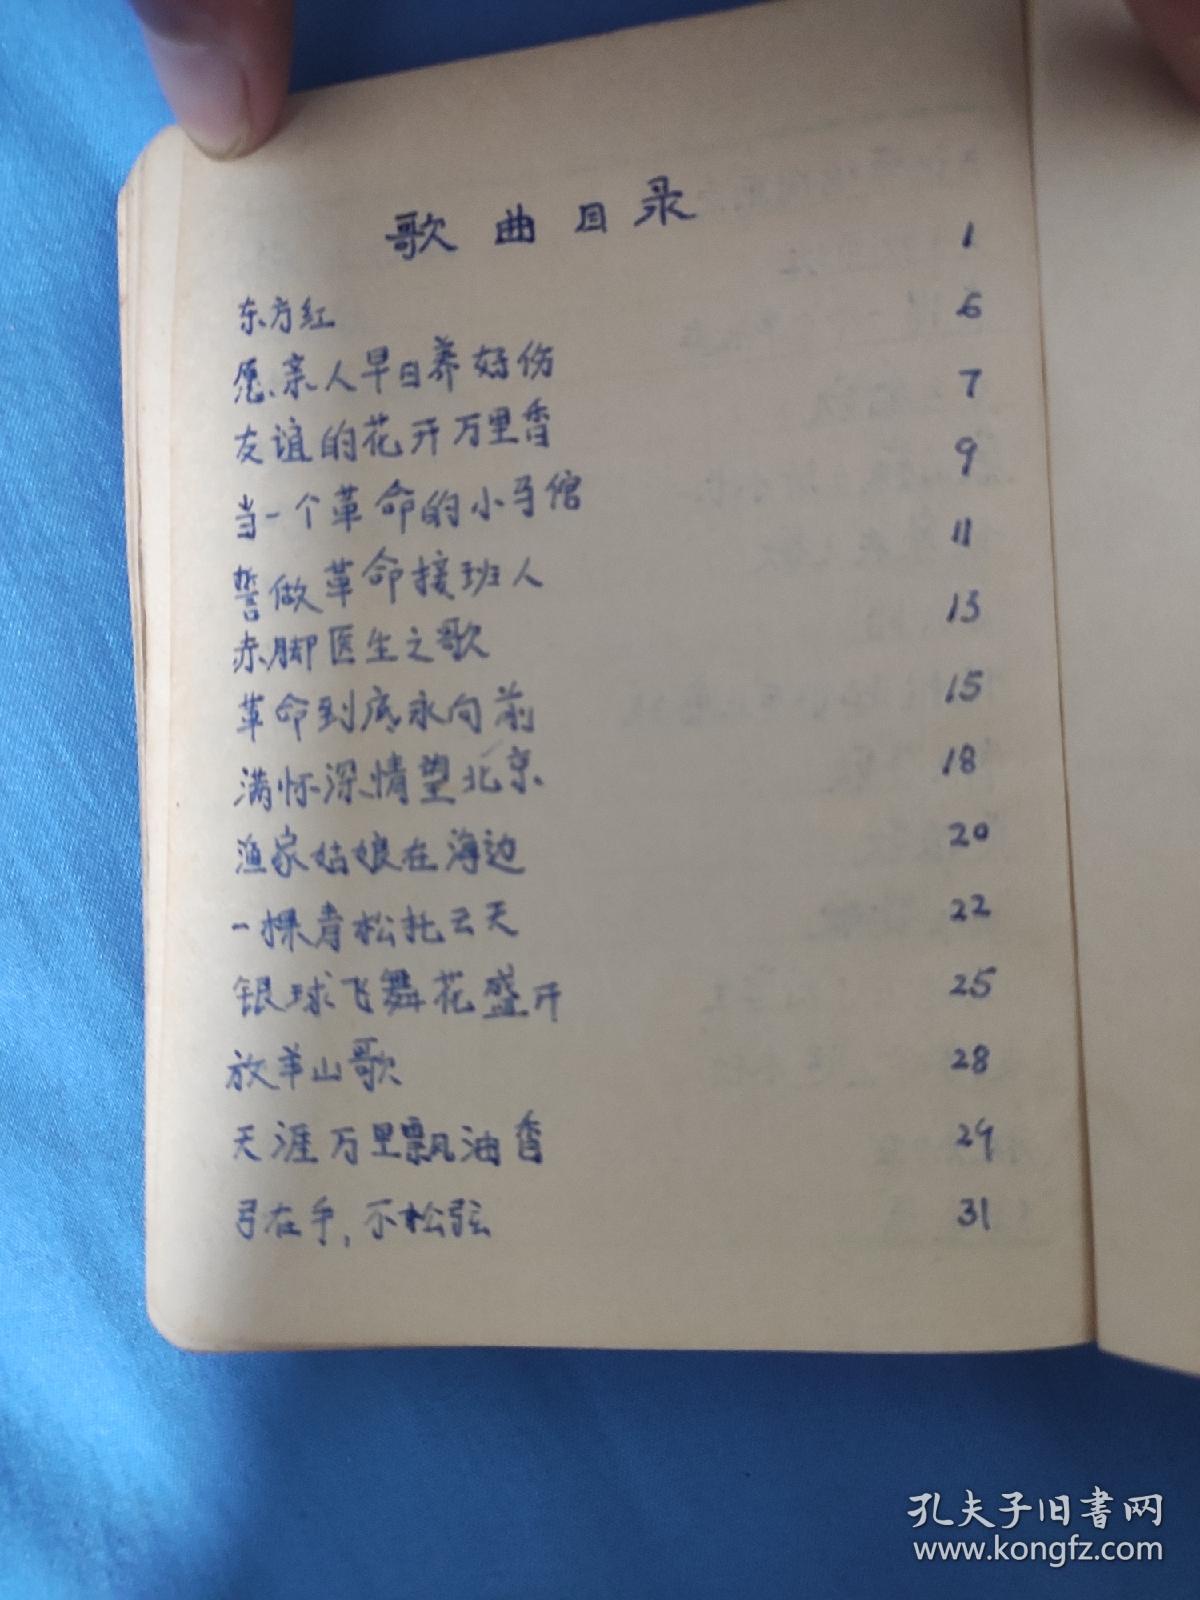 歌曲目录
东方红 1
愿亲人早日养好伤 6
友谊的花开万里香 7
当一个革命的小马倌 9
誓做革命接班人 11
赤脚医生之歌 13
革命到底永向前 15
满怀深情望北京 18
渔家姑娘在海边 20
一棵青松托云天 22
银球飞舞花盛开 25
放羊山歌 28
天涯万里飘油香 29
弓在手，不松弦 31
孔夫子旧书网
www.kongfz.com